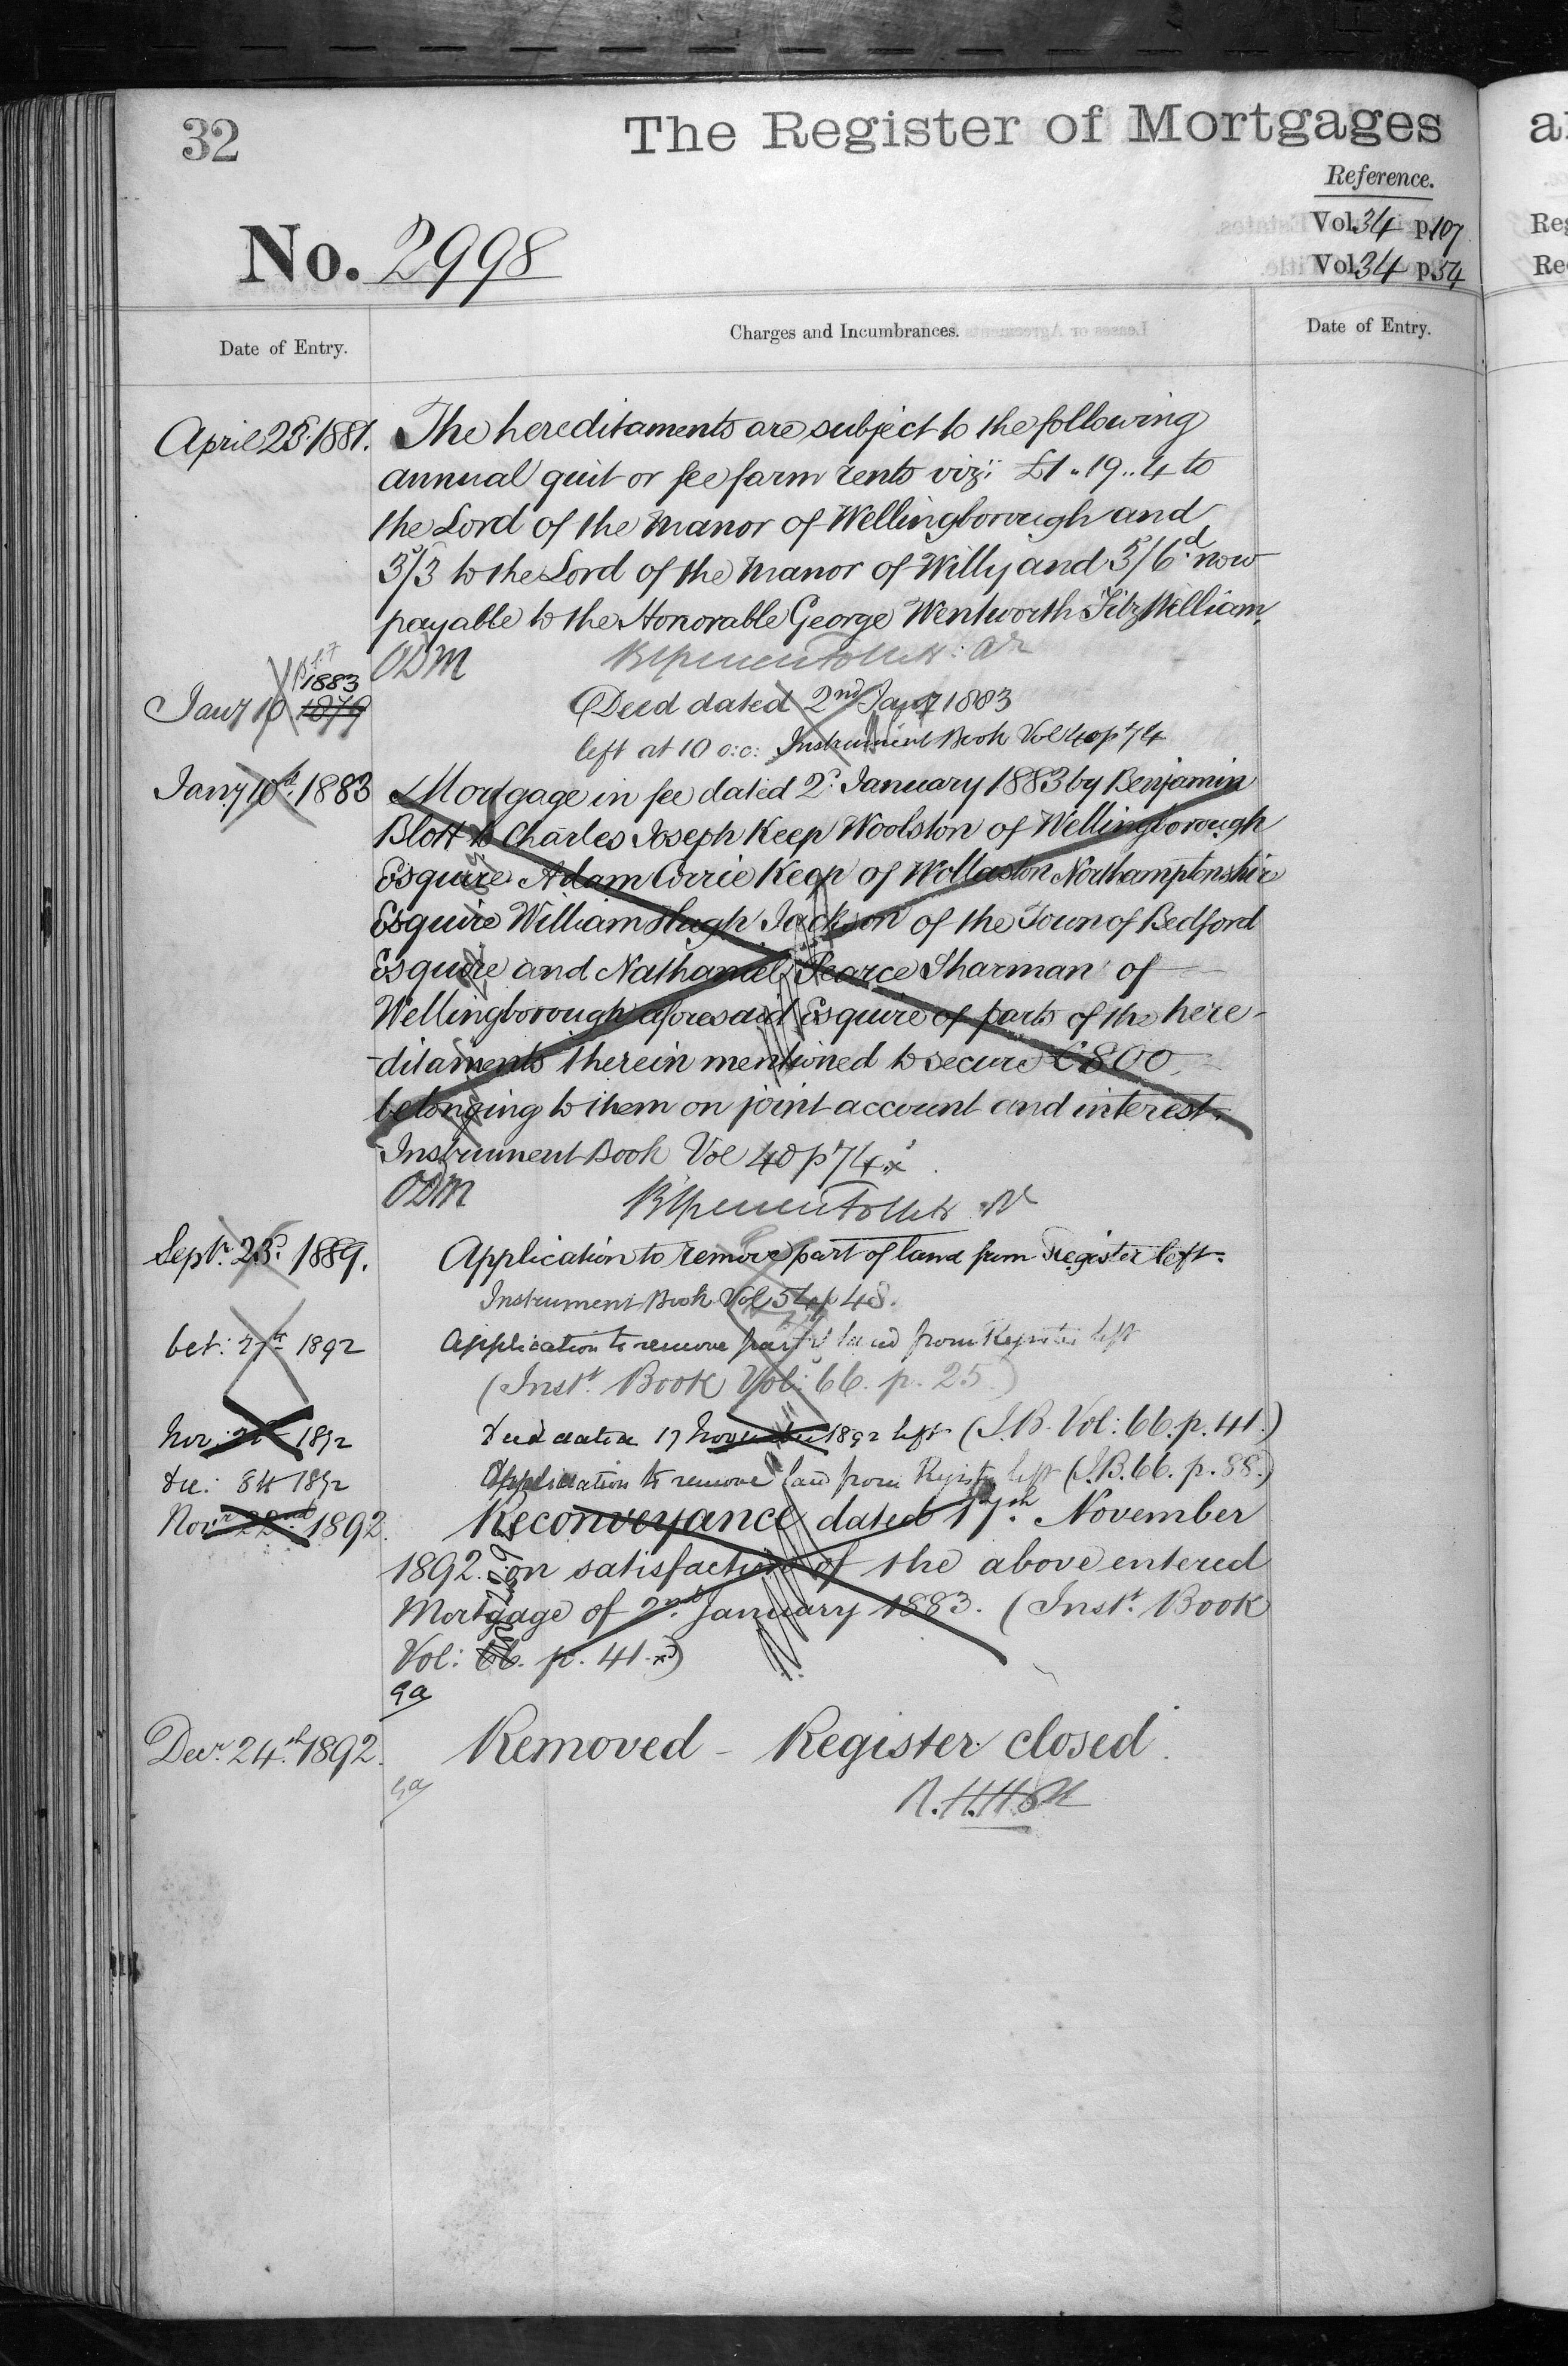 32
The Register of Mortgages
Reference.
Vol. 34 p. 107
No. 2998
Vol. 34 p. 54
Date of Entry.
Charges and Incumbrances.
Date of Entry.
April 25. 1881.
The hereditaments are subject to the following
annual quit or fee farm rents viz; £1 .. 19 .. 4 to
the Lord of the Manor of Wellingborough and
3/3 to the Lord of the Manor of Willy and 5/6d. now
payable to the Honorable George Wentworth FitzWilliam.
ODM
1883
Jany 10 1879
Deed dated 2nd Jany 1883
left at 10 o:c: Instrument Book Vol 40 p 74
Jany 10th. 1883
Mortgage in fee dated 2d. January 1883 by Benjamin
Blott to Charles Joseph Keep Woolston of Wellingborough
Esquire Adam Corrie Keep of Wollaston Northamptonshire
Esquire William Hugh Jackson of the Town of Bedford
Esquire and Nathaniel Pearce Sharman of
Wellingborough aforesaid Esquire of parts of the here-
ditaments therein mentioned to secure £800
belonging to them on joint account and interest.
Instrument Book Vol 40 p 74
ODM
Septr. 23d. 1889.
Application to remove part of land from Register left.
Instrument Book Vol 54 p 48.
27th 1892
Application to remove part of land from Register left
(Inst. Book Vol: 66. p. 25.)
Nov: 1892
Deed dated 17 November 1892 left (I.B. Vol: 66. p. 41.)
Dec: 8th 1892
Application to remove land from Register left (I.B. 66. p. 88.)
Novr 22nd 1892.
Reconveyance dated 17th. November
1892. on satisfaction of the above entered
Mortgage of 2nd. January 1883. (Inst. Book
Vol: 66. p. 41.)
ga
Decr. 24th. 1892.
Removed - Register closed.
ga